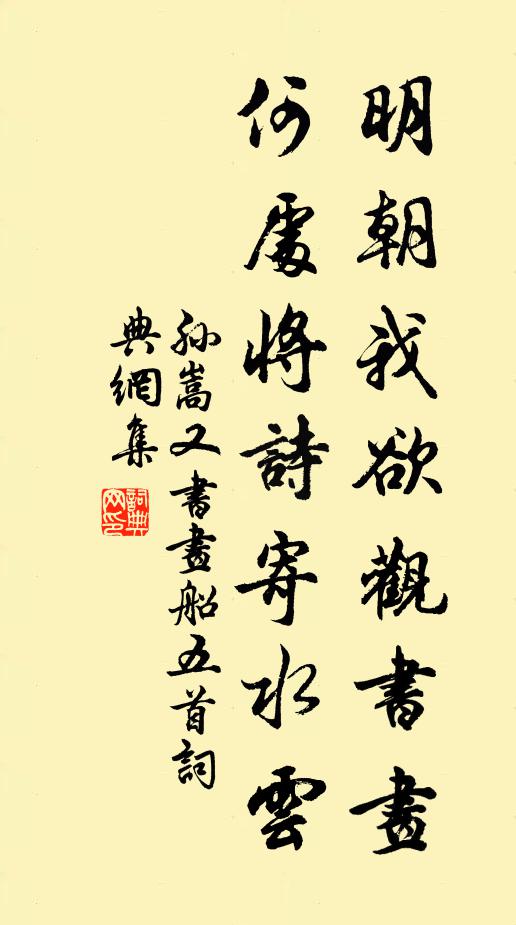 明朝我欲觀書畫
何處將詩寄水雲
孫嵩又書畫船五首詞
典網集
詞典網印